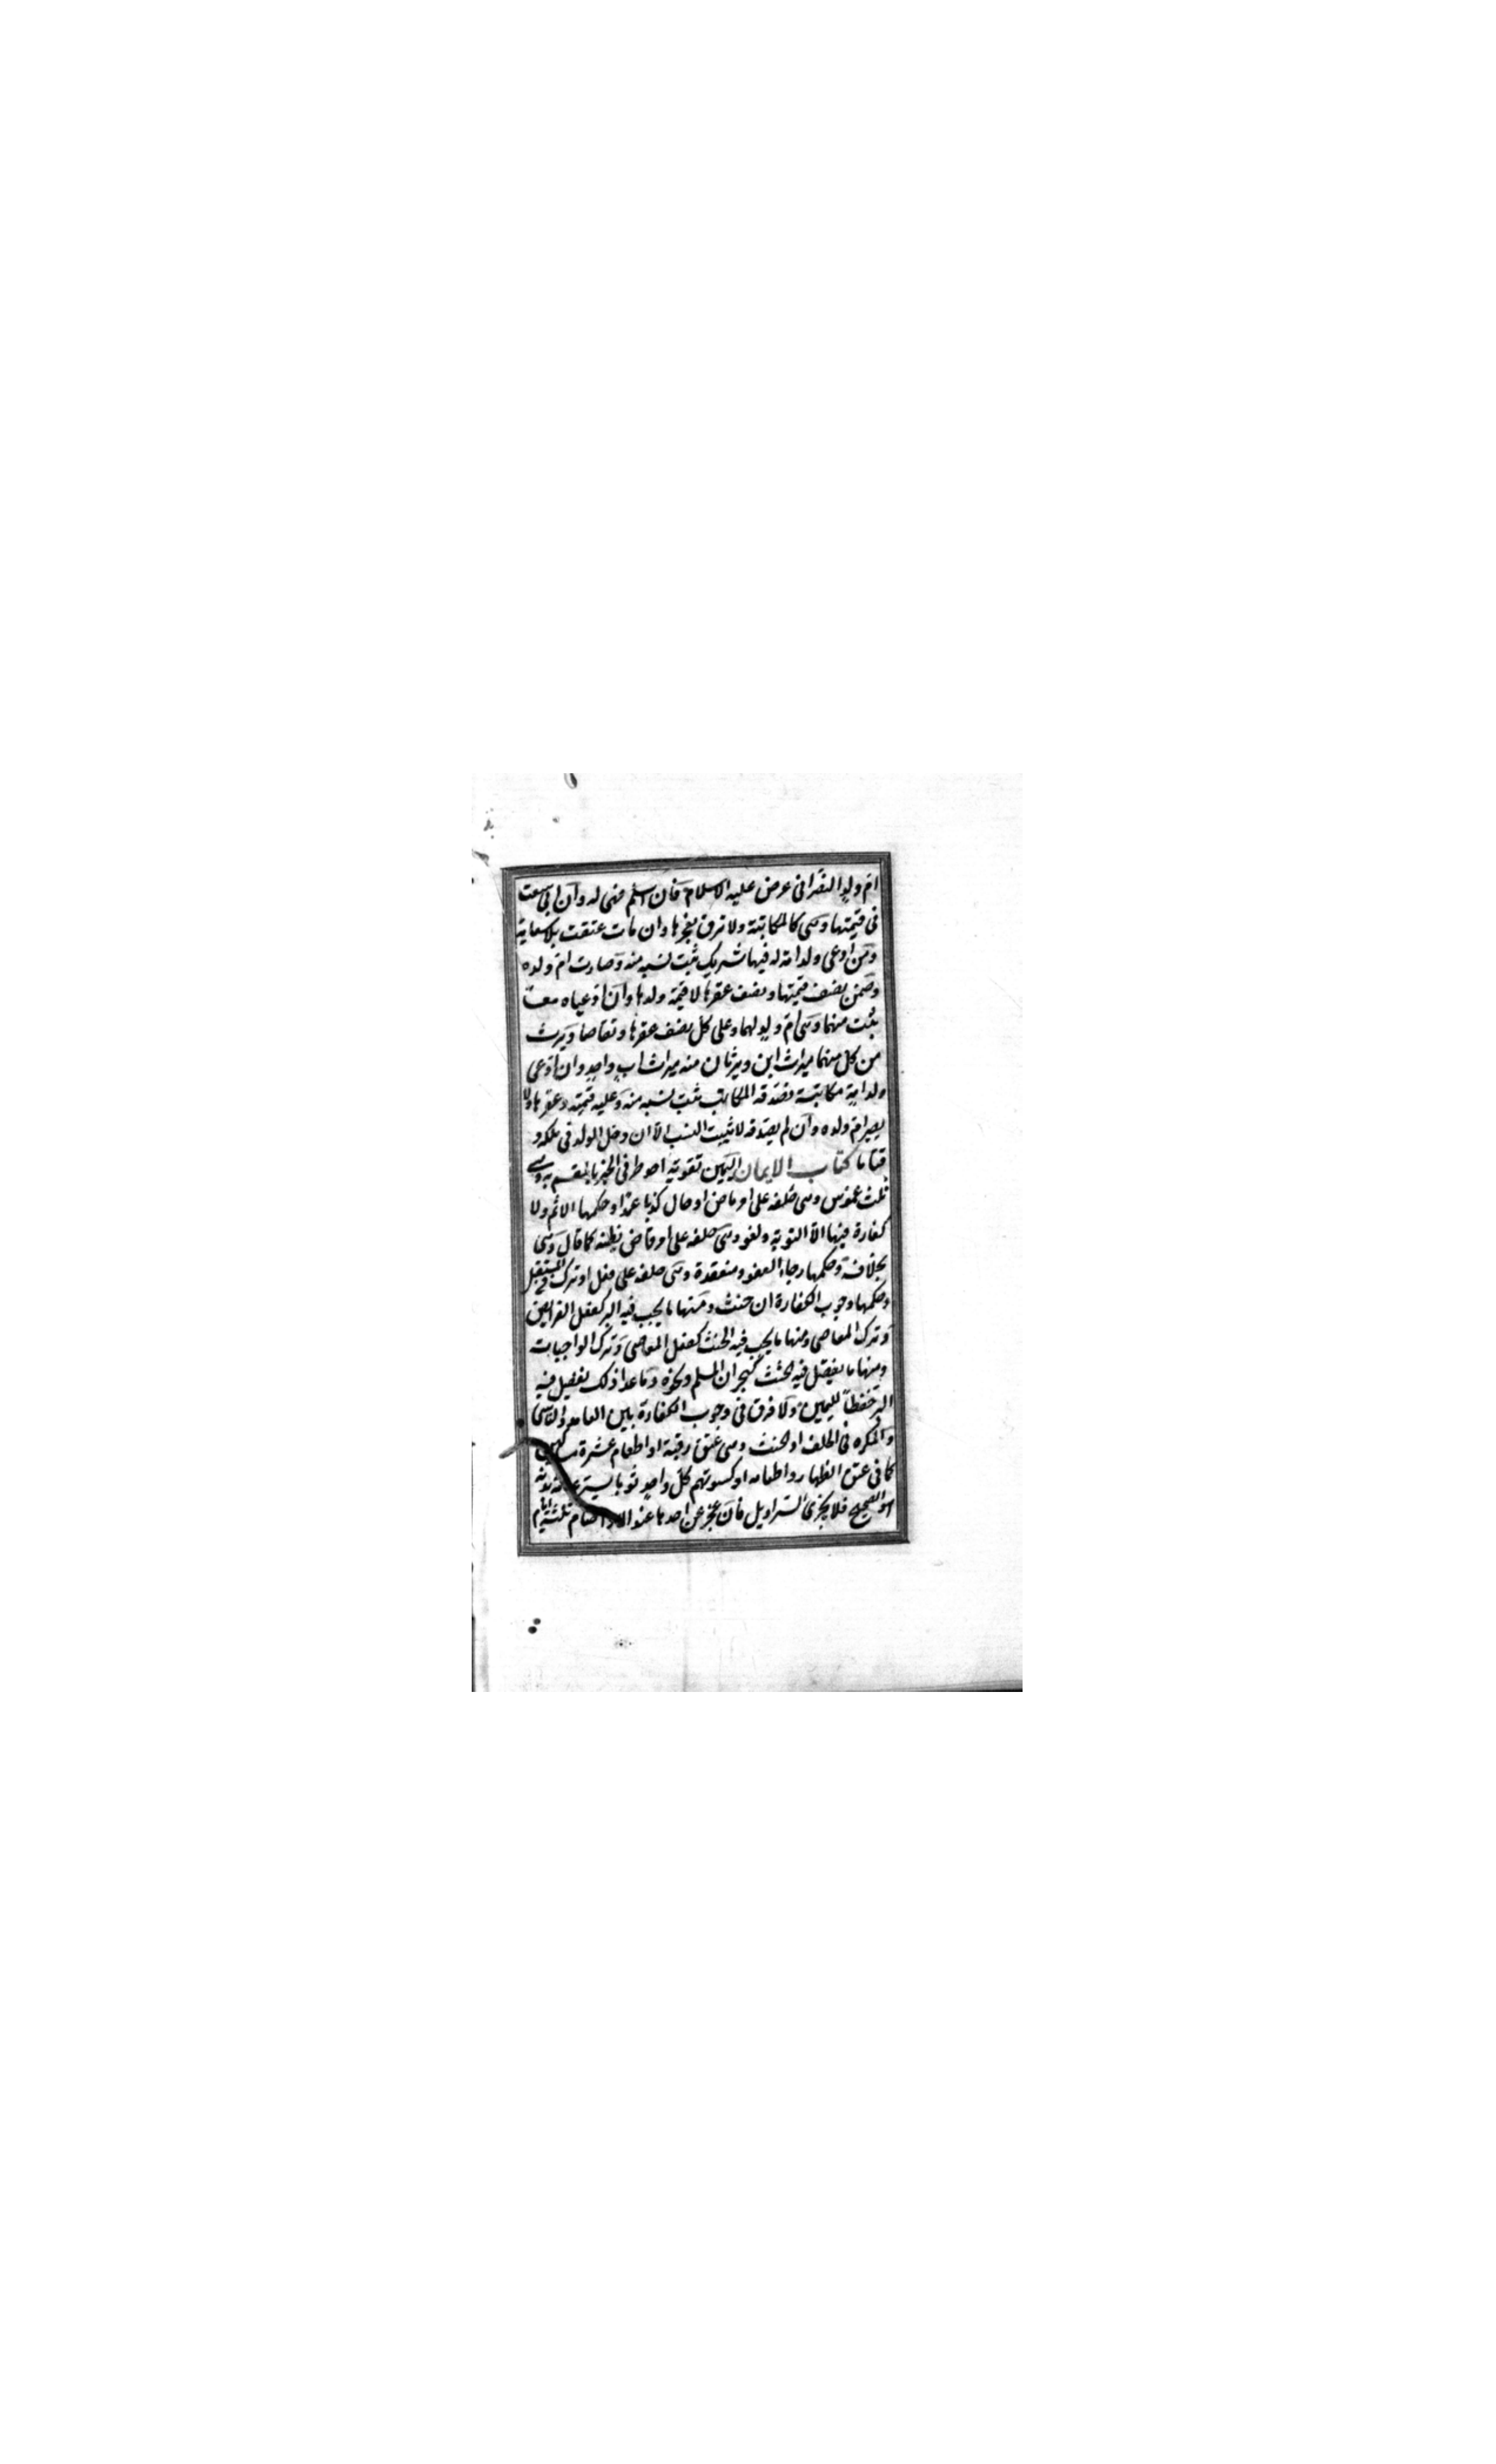 ام ولد النصرانى عرض عليه الاسلام فان اسلم فهى له وان ابى سعت
فى قيمتها وهى كالمكاتبة ولا ترق بعجزها وان مات عتقت بلا سعاية
ومن ادعى ولد امة له فيها شريك ثبت نسبه منه وصارت ام ولده
وضمن نصف قيمتها ونصف عقرها لا قيمة ولدها وان ادعياه معا
ثبت منهما وهى ام ولد لهما وعلى كل نصف عقرها وتقاصا ويرث
من كل منهما ميراث ابن ويرثان منه ميراث اب واحد وان ادعى
ولد امة مكاتبه فصدقه المكاتب ثبت نسبه منه وعليه قيمته وعقرها ولا
يصير ام ولده وان لم يصدقه لا يثبت النسب الا ان دخل الولد فى ملكه و
قتا ما كتاب الايمان اليمين تقوية احد طرفى الخبر بالمقسم به وهى
ثلث غموس وهى حلفه على امر ماض او حال كذبا عمدا وحكمها الاثم ولا
كفارة فيها الا التوبة ولغو وهى حلفه على امر ماض يظنه كما قال وهى
بخلافه وحكمها رجاء العفو ومنعقدة وهى حلفه على فعل او ترك فى المستقبل
وحكمها وجوب الكفارة ان حنث ومنها ما يجب فيه البر كفعل الفرايض
وترك المعاصى ومنها ما يجب فيه الحنث كفعل المعاصى وترك الواجبات
ومنها ما يفضل فيه الحنث كهجران المسلم ونحوه وما عدا ذلك يفضل فيه
البر حفظا لليمين ولا فرق فى وجوب الكفارة بين العامد والناسى
والمكره فى الحلف او الحنث وهى عتق رقبة او اطعام عشرة مساكين
كما فى عتق الظهار واطعامه او كسوتهم كل واحد ثوبا يستر عامة بدنه
هو الصحيح فلا يجزئ السراويل فان عجز عن احدها عند الاداء صام ثلثة ايام